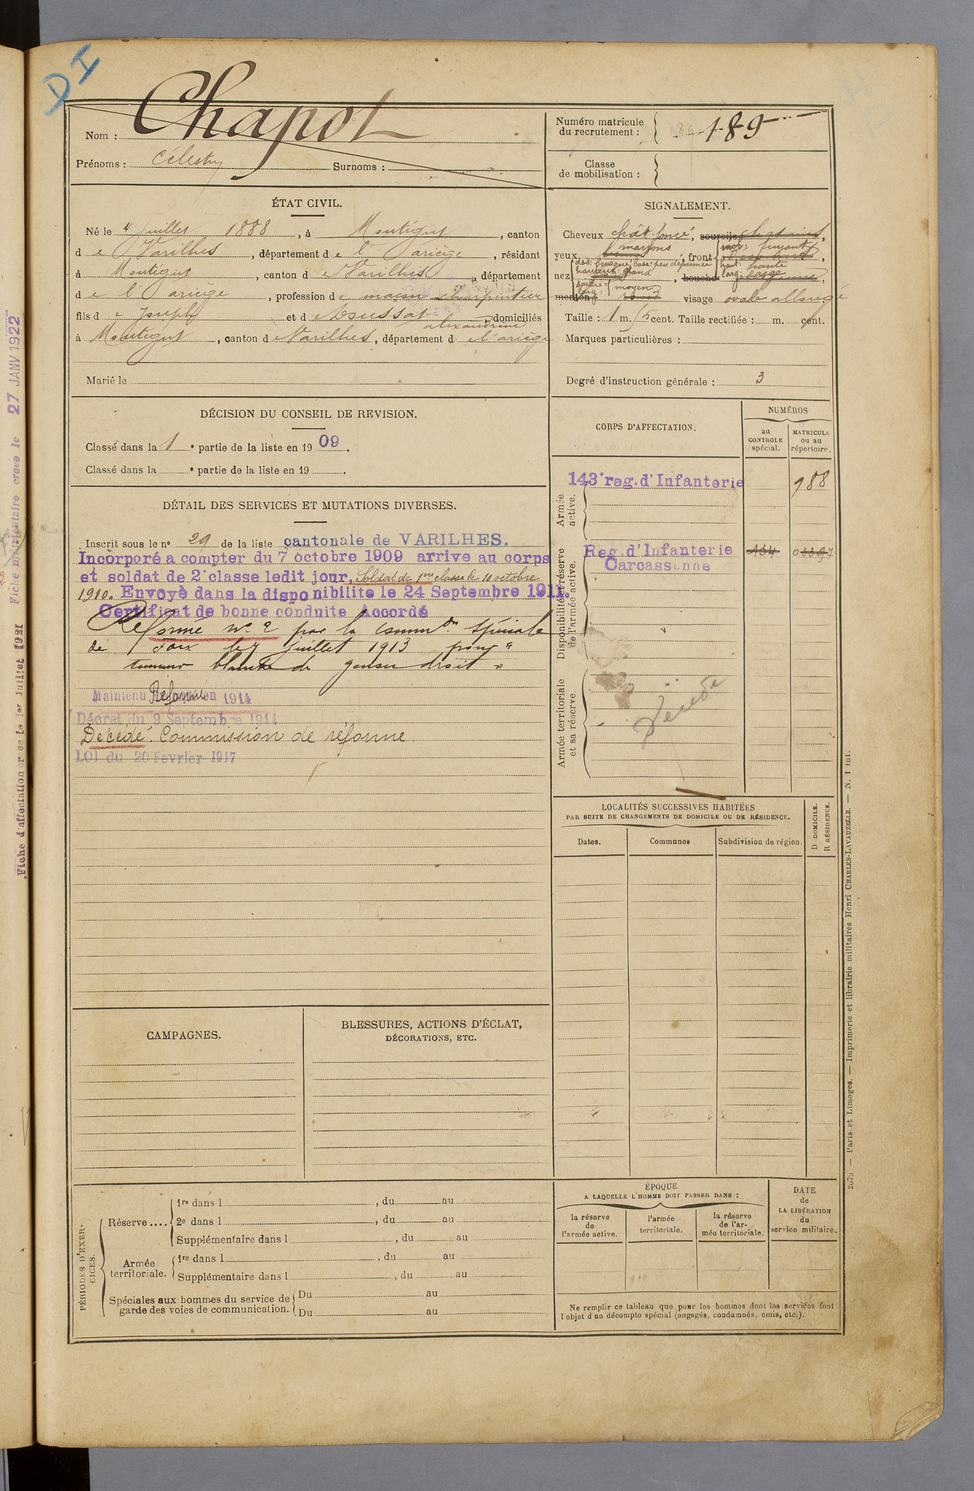 DI
Nom : Chapot
Prénoms : Célestin Surnoms :
Numéro matricule du recrutement : 189
Classe de mobilisation :
ÉTAT CIVIL.
Né le 4 juillet 1888, à Montégut, canton
de Varilhes, département de l'Ariège, résidant
à Montégut, canton de Varilhes, département
de l'Ariège, profession de maçon Charpentier
fils de Joseph et de Soussat Alexandrine, domiciliés
à Montégut, canton de Varilhes, département de l'Ariège
Marié le
SIGNALEMENT.
Cheveux chât. foncé, sourcils châtains,
yeux marrons, front fuyant
nez, bouche
menton, visage ovale allongé
Taille : 1 m. cent. Taille rectifiée : m. cent.
Marques particulières :
Degré d'instruction générale : 3
DÉCISION DU CONSEIL DE REVISION.
Classé dans la 1e partie de la liste en 1909.
Classé dans la e partie de la liste en 19 .
DÉTAIL DES SERVICES ET MUTATIONS DIVERSES.
Inscrit sous le n° 29 de la liste cantonale de VARILHES.
Incorporé a compter du 7 octobre 1909 arrive au corps
et soldat de 2e classe ledit jour, Soldat de 1ère classe le 10 octobre
1910. Envoyé dans la disponibilité le 24 Septembre 1911.
Certificat de bonne conduite Accordé
Réformé n° 2 par la Common Spéciale
de Foix le 7 juillet 1913 pour "
tumeur blanche du genou droit "
Maintenu Réformé en 1914
Décret du 9 Septembre 1914
Décédé. Commission de réforme.
LOI du 20 Février 1917
CORPS D'AFFECTATION.
NUMÉROS
au CONTROLE spécial.
MATRICULE ou au répertoire.
Armée active.
143e reg. d'Infanterie 988
Disponibilité et réserve de l'armée active.
Reg. d'Infanterie
Carcassonne
Armée territoriale et sa réserve.
Décédé
LOCALITÉS SUCCESSIVES HABITÉES
PAR SUITE DE CHANGEMENTS DE DOMICILE OU DE RÉSIDENCE.
Dates.
Communes
Subdivision de région.
D DOMICILE.
R RÉSIDENCE.
CAMPAGNES.
BLESSURES, ACTIONS D'ÉCLAT,
DÉCORATIONS, ETC.
PÉRIODES D'EXERCICES.
Réserve....
1re dans l , du au
2e dans l , du au
Supplémentaire dans l , du au
Armée territoriale.
1re dans l , du au
Supplémentaire dans l , du au
Spéciales aux hommes du service de garde des voies de communication.
Du au
Du au
ÉPOQUE
A LAQUELLE L'HOMME DOIT PASSER DANS :
la réserve de l'armée active.
l'armée territoriale.
la réserve de l'armée territoriale.
DATE de LA LIBÉRATION du service militaire.
Ne remplir ce tableau que pour les hommes dont les services font
l'objet d'un décompte spécial (engagés, condamnés, omis, etc.).
— Paris et Limoges. — Imprimerie et librairie militaires Henri CHARLES-LAVAUZELLE. — N. 1 int.
27 JANV 1922